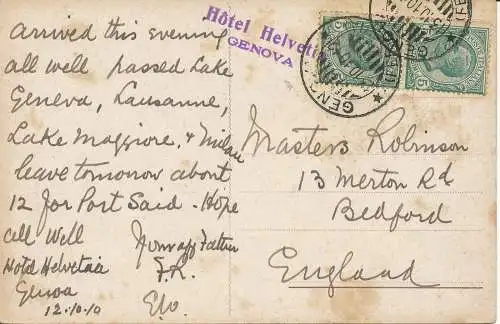 Arrived this evening
all well passed Lake
Geneva, Lausanne,
Lake Maggiore, & Milan
leave tomorrow about
12 for Port Said - Hope
all well
Hotel Helvetia
Genoa
12.10.10
Father
F.R.
Hôtel Helvetia
GENOVA
Masters Robinson
13 Merton Rd
Bedford
England